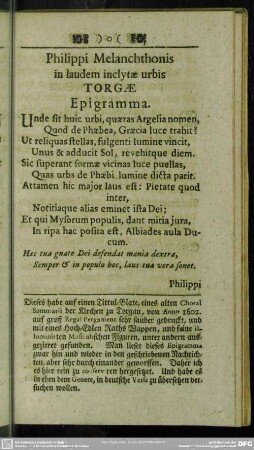 )o(
Philippi Melanchthonis
in laudem inclytæ urbis
TORGÆ
Epigramma.
Unde sit huic urbi, quæras Argelia nomen,
Quod de Phœbea, Græcia luce trahit?
Ut reliquas stellas, fulgenti lumine vincit,
Unus & adducit Sol, revehitque diem.
Sic superant formæ vicinas luce puellas,
Quas urbs de Phœbi lumine dicta parit.
Attamen hic major laus est: Pietate quod
inter,
Notitiaque alias eminet ista Dei;
Et qui Mysorum populis, dant mitia jura,
In ripa hac posita est, Albiades aula Du-
cum.
Hæc tua gnate Dei defendat mœnia dextra,
Semper & in populo hoc, laus tua vera sonet.
Philippi
Dieses habe auf einen Tittul-Blate, eines alten Choral
Summarii der Kirchen zu Torgau, von Anno 1602.
auf groß Regal Pergament sehr sauber gedruckt, und
mit eines Hoch-Edlen Raths Wappen, und feine il-
luminirten Musicalischen Figuren, unter andern aus-
gezieret gefunden. Man lieset dieses Epigramma
zwar hin und wieder in den geschriebenen Nachrich-
ten, aber sehr durch einander geworffen. Daher ich
es hier rein zu conserviren hergesetzet. Und habe es
in eben dem Genere, in deutsche Verse zu übersetzen ver-
suchen wollen.